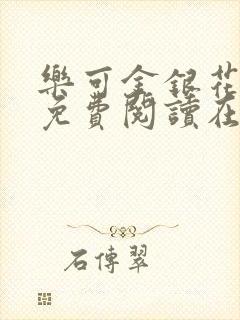 樂可金銀花
免費閱讀在
石傳翠